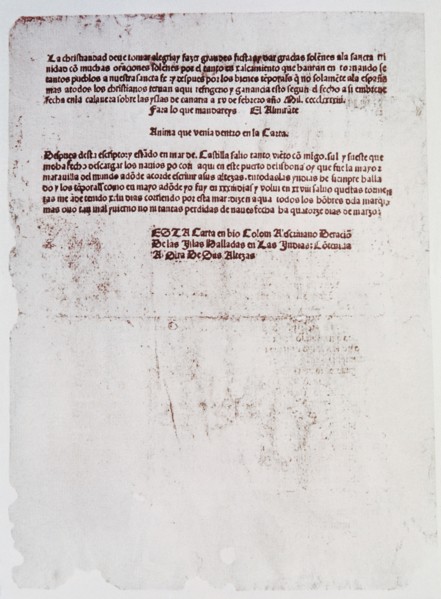 La christiandad deue tomar alegria y fazer grandes fiestas y dar gracias solẽnes ala sancta tri
nidad cõ muchas oraciones solẽnes por el tanto enxalcamiento que hauran en tornando se
tantos pueblos a nuestra sancta fe y despues por los bienes tẽporales q̃ no solamẽte ala españa
mas atodos los christianos ternan aqui refrigerio y ganancia esto segun el fecho asi embreue
fecha enla calauera sobre las yslas de canaria a xv de febrero año Mil. cccclxxxxiii.
Fara lo que mandareys El Almirãte
Anima que venia dentro en la Carta.
Despues desta escripto: y estãdo en mar de Castilla salio tanto viẽto cõ migo. sul y sueste que
me ha fecho descargar los nauios po cori aqui en este puerto de lisbona oy que fue la mayor
marauilla del mundo adõde acorde escriuir asus altezas. entodas las yndias he siempre halla
do y los tẽporals como en mayo adõde yo fuy en xxxiii dias y volui en xxviii saluo questas tormen
tas me ã detenido xiiii dias corriendo por esta mar: dizen aqua todos los hõbres dela mar q̃ ja
mas ouo tan mal yuierno no ni tantas perdidas de naues fecha ha quatorze dias de marzo:
ESTA Carta en bio Colom A escriuano Deraciõ
De las Islas Halladas en Las Indias: Cõtenida
A Otra De Sus Altezas